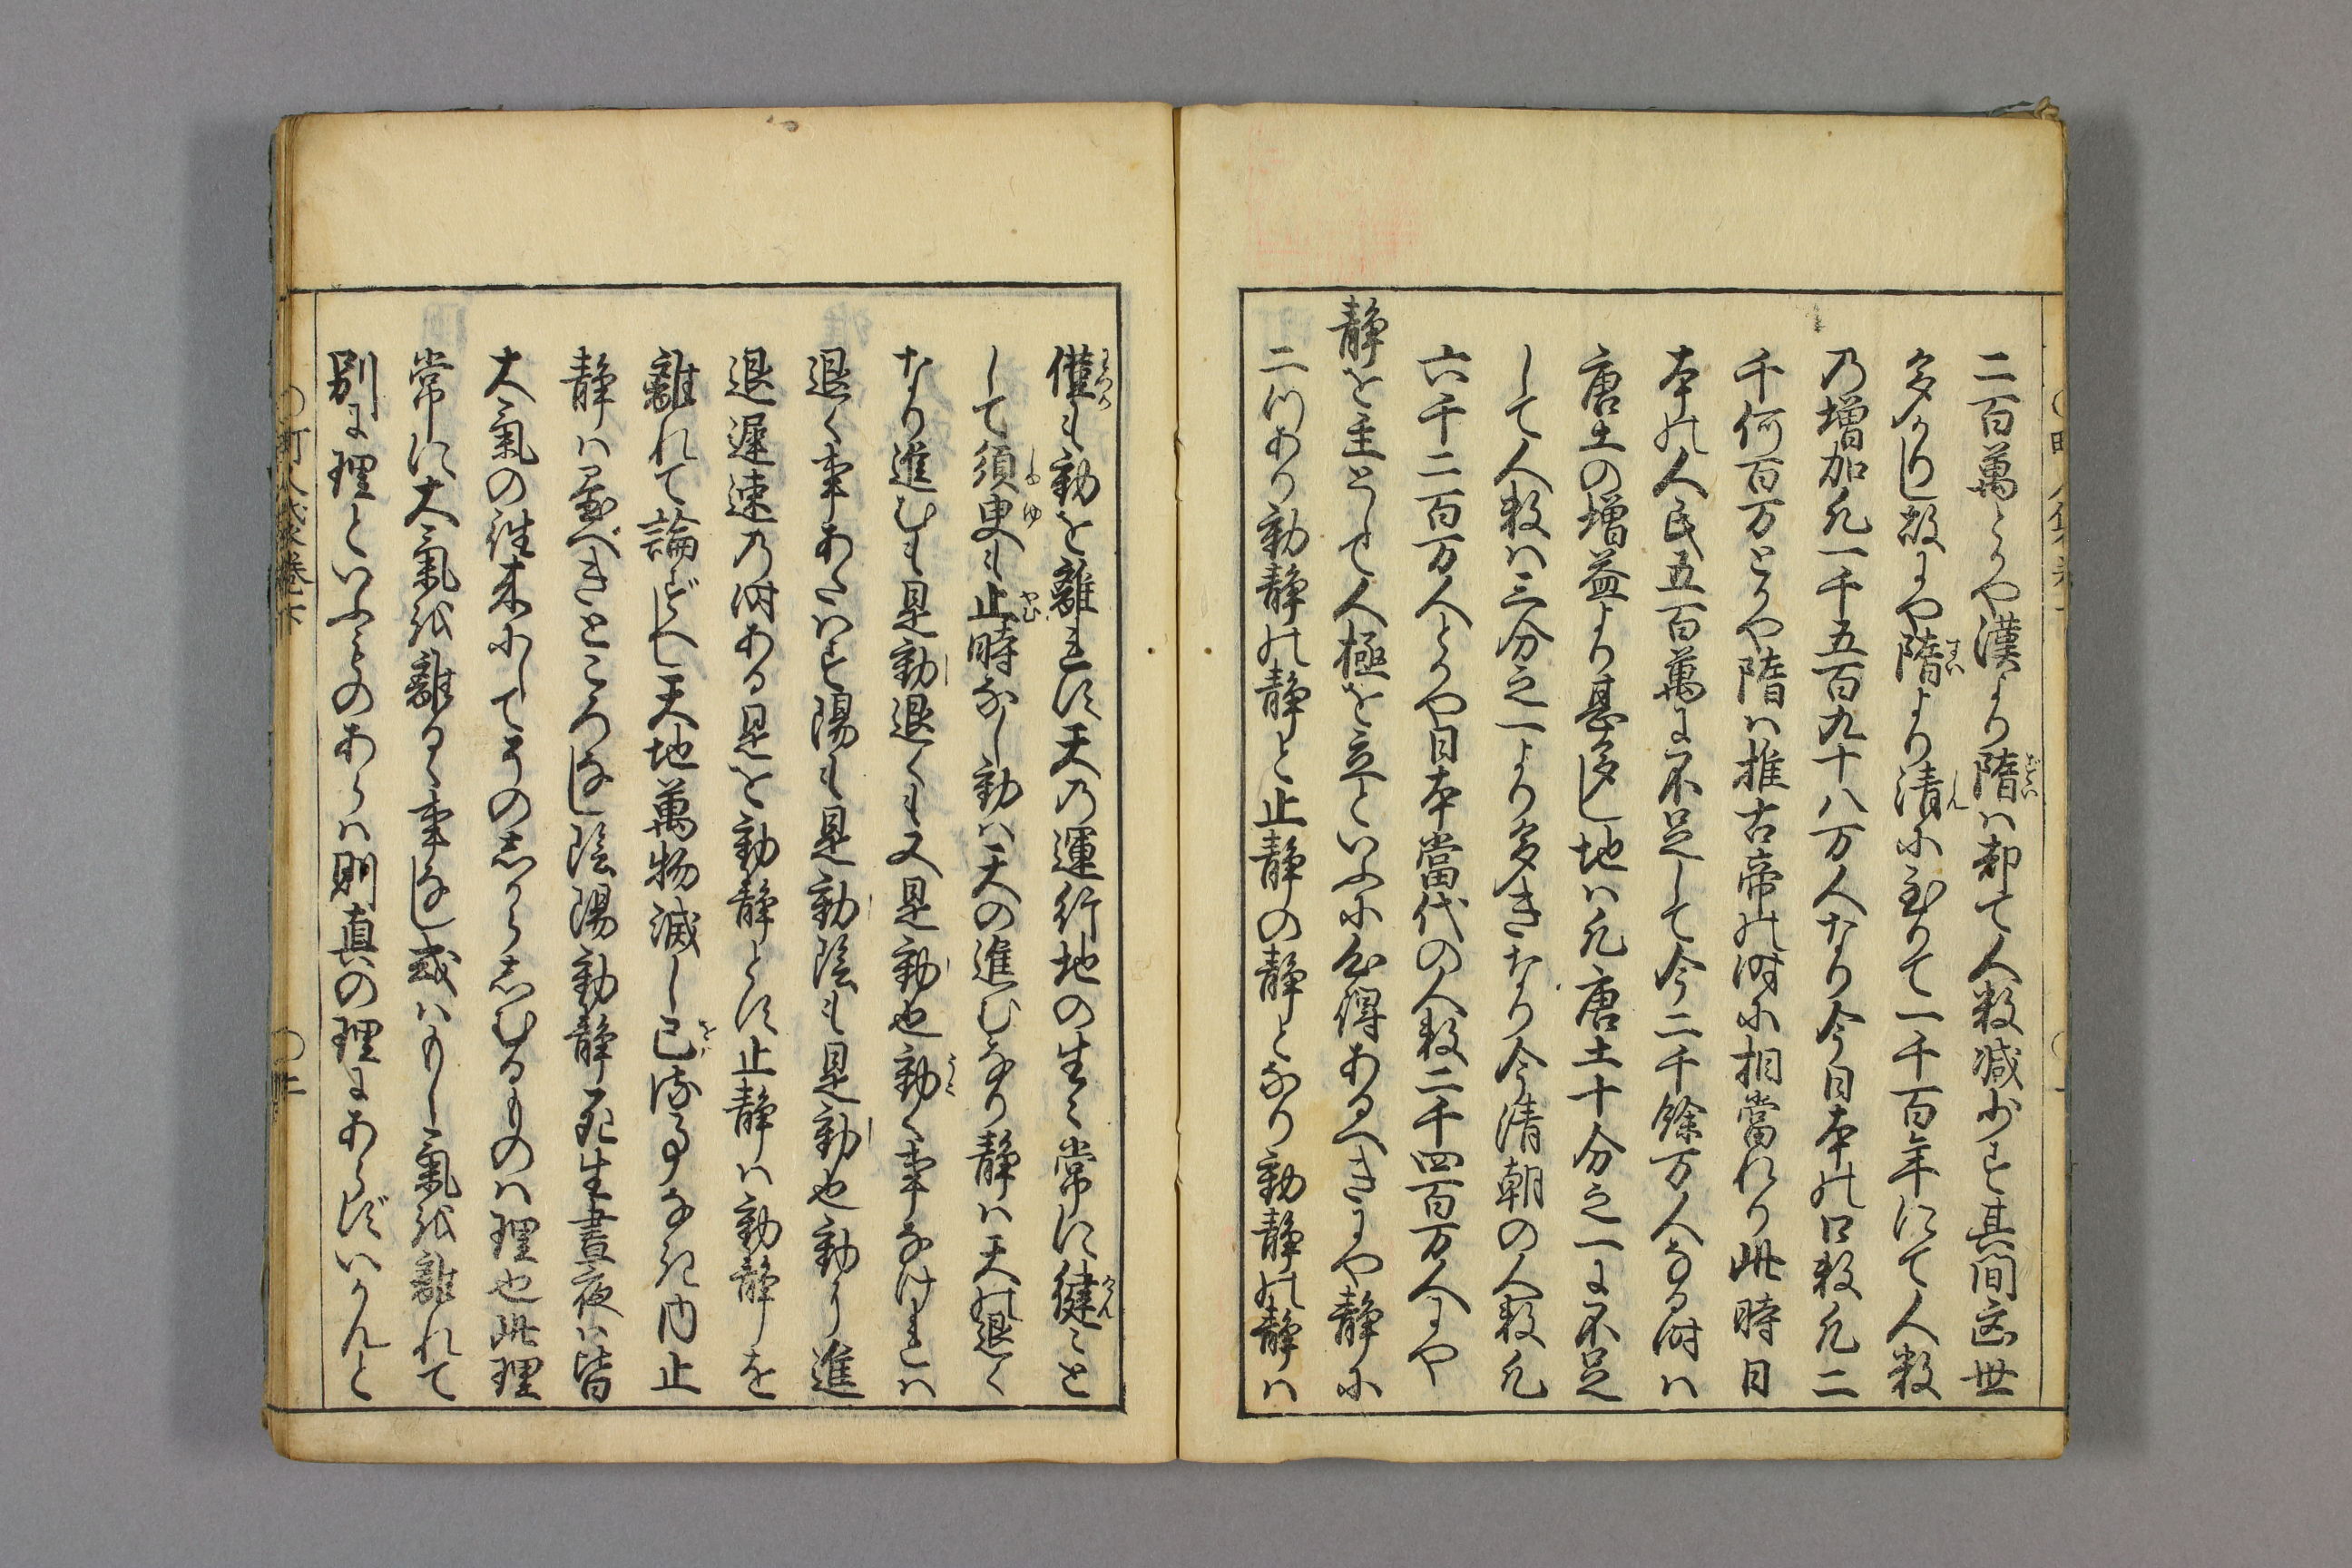 二百萬とかや漢より隋は却て人数減少す其間乱世
多かりし故にや隋より清に至りて一千百年にて人数
乃増加凡一千五百九十八万人なり今日本の口数凡二
千何百万とかや隋は推古帝の時に相當れり此時日
本の人民五百萬に不足して今二千餘万人なる時は
唐土の増益より甚多し地は凡唐土十分之一に不足
して人数は三分之一より多きなり今清朝の人数凡
六千二百万人とかや日本當代の人数二千四百万人にや
静を主として人極を立といふに心得あるへきにや静に
二つあり動静の静と止静の静となり動静の静は
僅も動を離れす天乃運行地の生々常に健々と
して須臾も止時なし動は天の進むなり静は天の退く
なり進むも是動退くも又是動也動く事なけれは
退く事あたはす陽も是動陰も是動也動より進
退遅速乃時ある是を動静とす止静は動静を
離れて論ずへし天地萬物滅し已ぬる事なき内止
静は置べきところなし陰陽動静死生晝夜は皆
大氣の往来にしてその志からしむるものは理也此理
常に大氣を離るゝ事なし或はもし氣を離れて
別に理といふものあらは則真の理にあらずいかんと
町人袋巻下